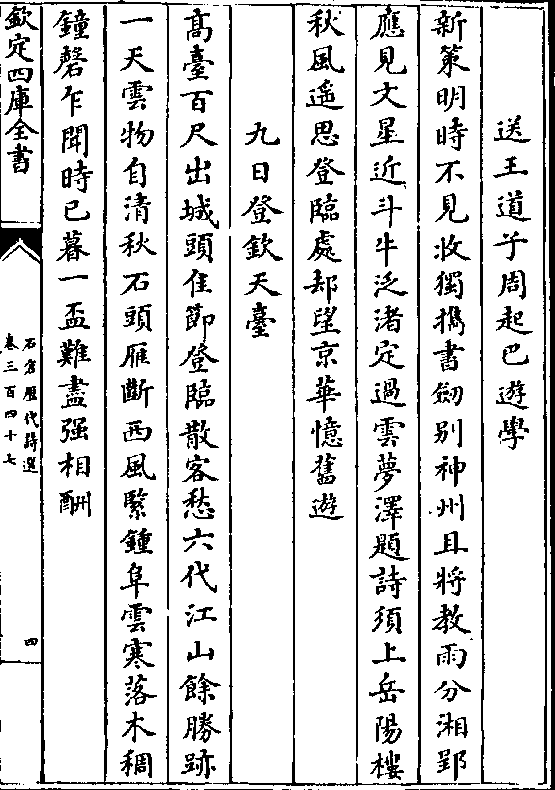 送王道子周起巴遊學
新策明時不見收獨攜書劒别神州且將教雨分湘郢
應見文星近斗牛泛渚定過雲夢澤題詩須上岳陽樓
秋風遥思登臨處却望京華憶舊遊
九日登欽天臺
髙臺百尺出城頭佳節登臨散客愁六代江山餘勝跡
一天雲物自清秋石頭雁斷西風緊鍾阜雲寒落木稠
鐘磬乍聞時已暮一盃難盡强相酬
欽定四庫全書
石倉歷代詩選
卷三百四十七
四